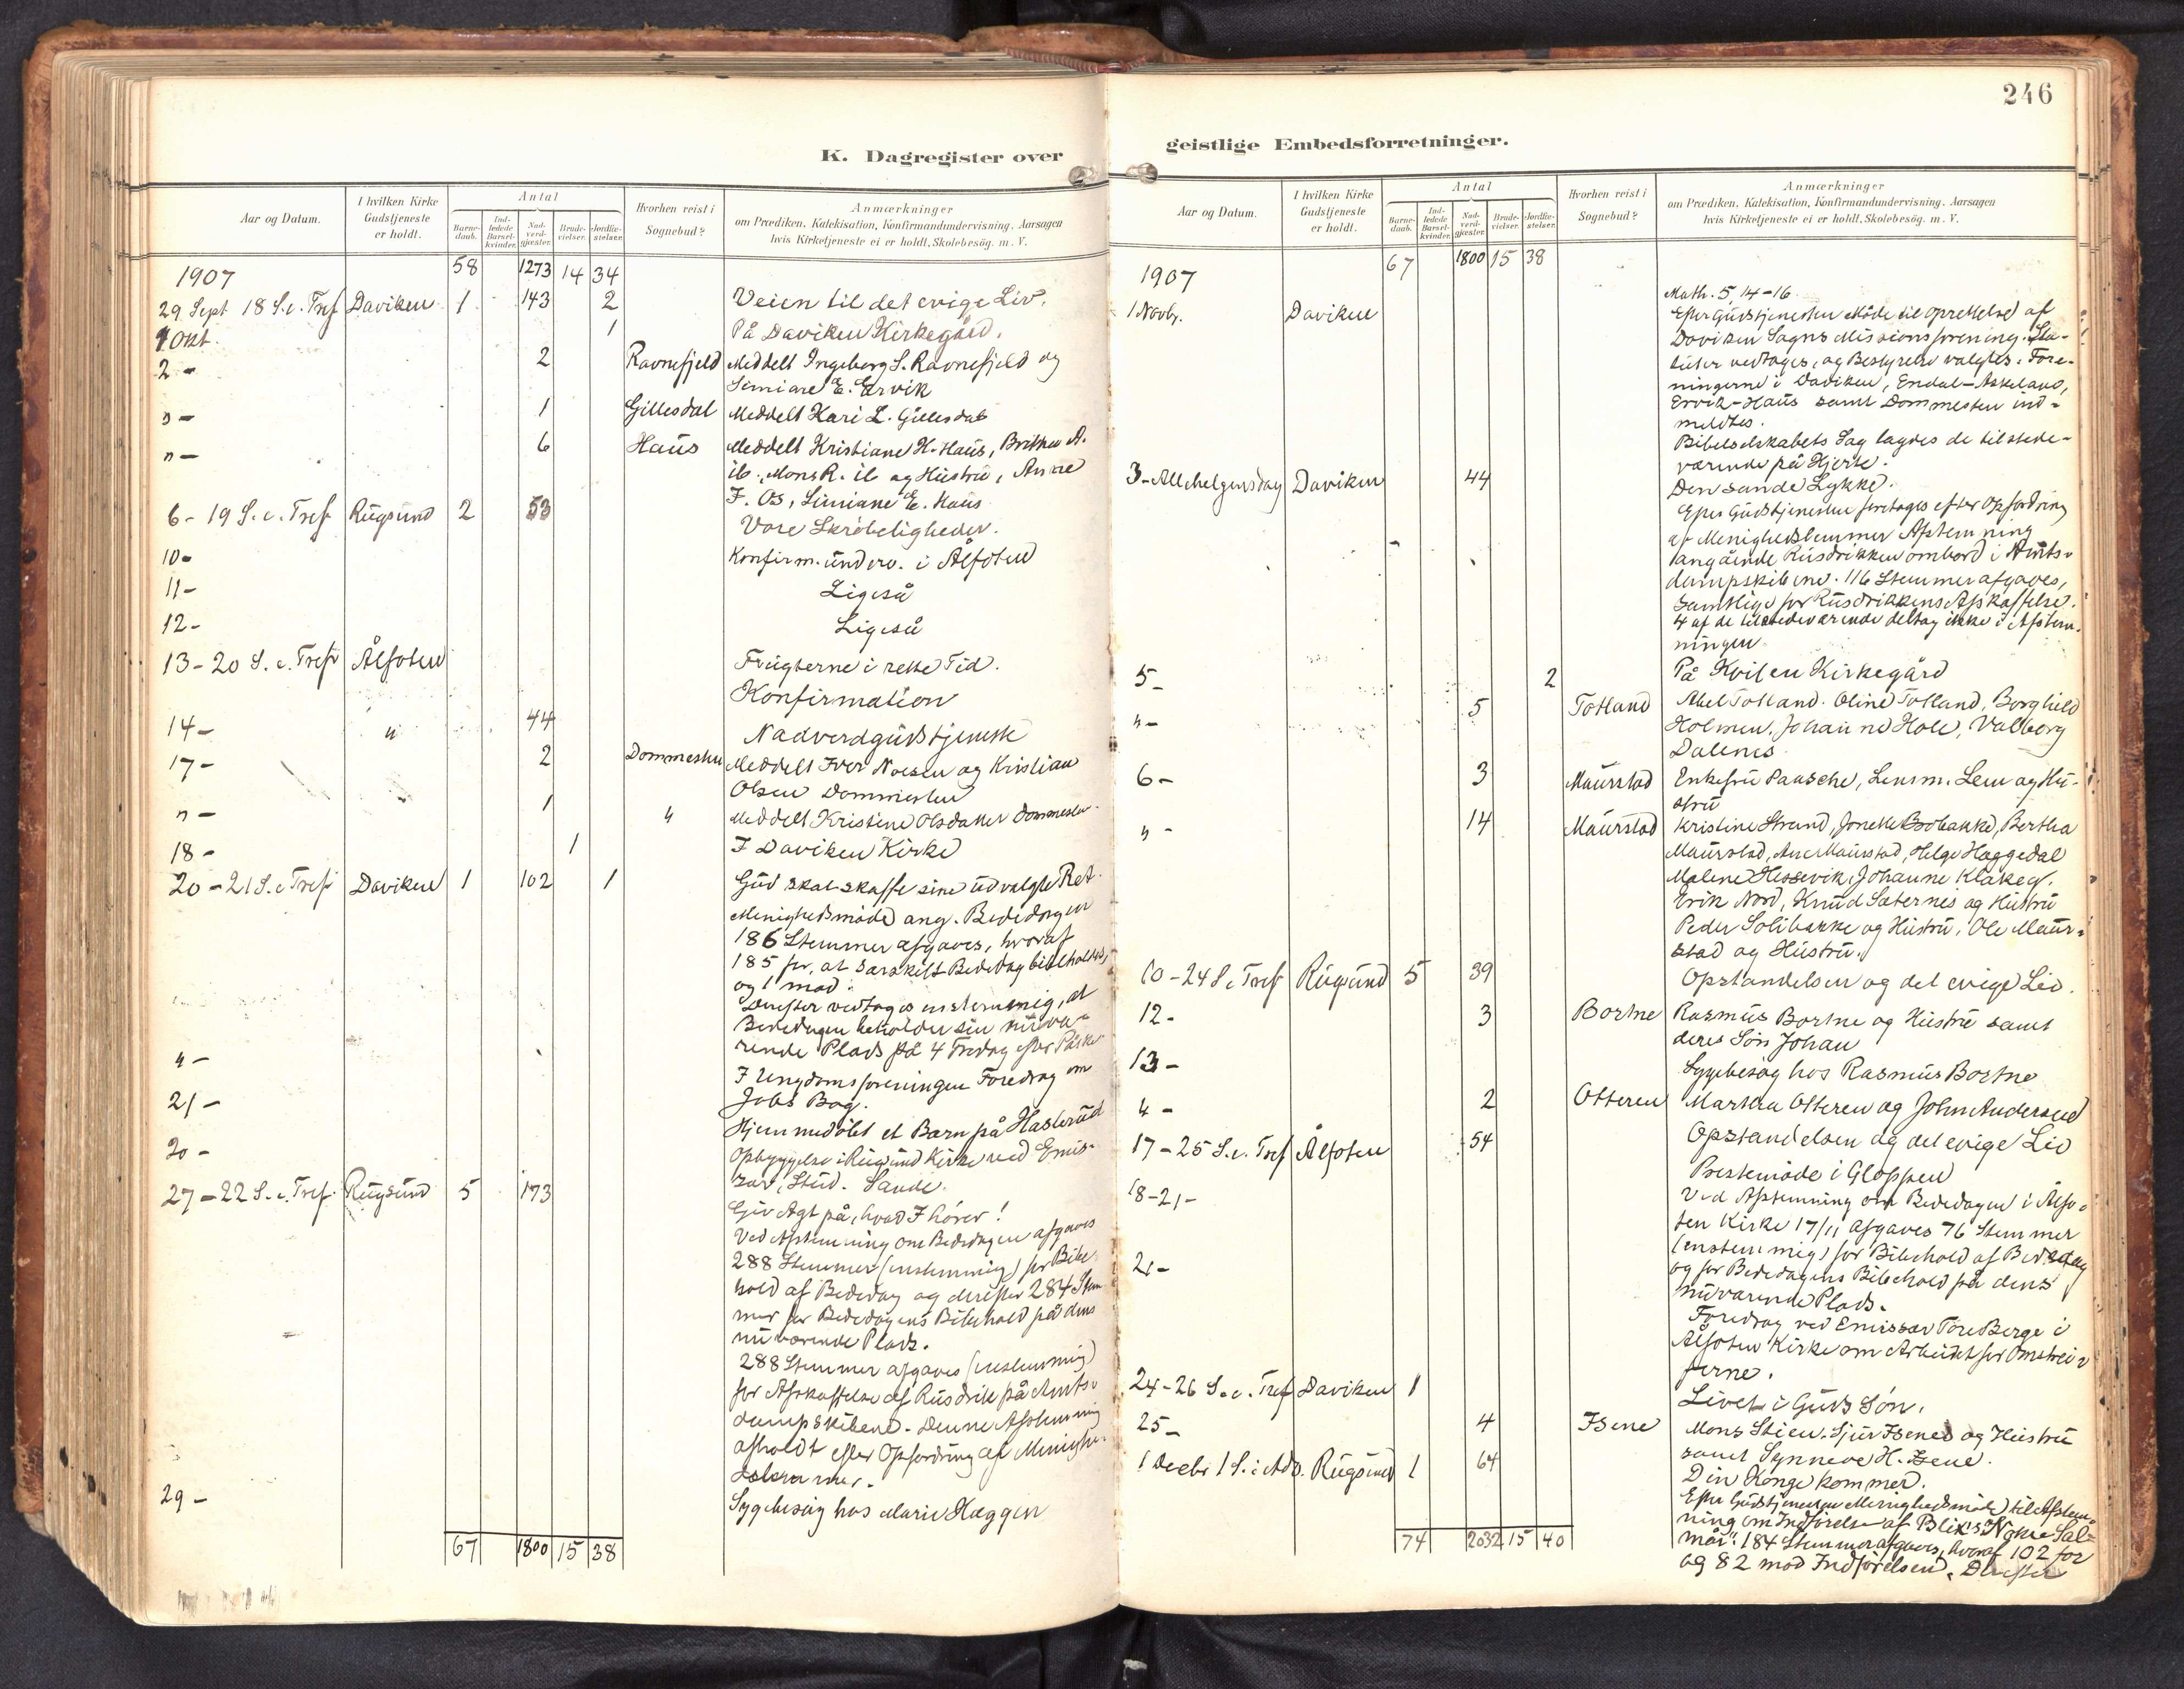 246
K. Dagregister over
geistlige Embedsforretninger.
Aar og Datum.
I hvilken Kirke Gudstjeneste er holdt.
Antal
Barne-daab.
Ind-ledede Barsel-kvinder.
Nad-verd-gjæster.
Brude-vielser.
Jordfæ-stelser.
Hvorhen reist i Sognebud?
Anmærkninger
om Prædiken, Katekisation, Konfirmandundervisning. Aarsagen
hvis Kirketjeneste ei er holdt, Skolebesög. m. V.
1907 58 1273 14 34
29 Sept 18 S. e. Tref Daviken 1 143 2 Veien til det evige Liv.
1 Okt. 1 På Daviken Kirkegård.
2 - 2 Ravnefjeld Meddelt Ingeborg S. Ravnefjeld og
Simiane E. Ervik
" - 1 Gillesdal Meddelt Kari L. Gillesdal
" - 6 Haus Meddelt Kristiane H. Haus, Brithe A.
ib., Mons R. ib og Hustru, Anne
J. Os, Simiane E. Haus
6 - 19 S. e. Tref Rugsund 2 53 Vore Skrøbeligheder.
10 - Konfirm. underv. i Ålfoten
11 - Ligeså
12 - Ligeså
13 - 20 S. e. Tref Ålfoten Frugterne i rette Tid.
Konfirmation
14 - " 44 Nadverdgudstjeneste
17 - 2 Dommesten Meddelt Iver Noesen og Kristian
Olsen Dommesten
" - 1 " Meddelt Kristine Olsdatter Dommesten
18 - 1 I Daviken Kirke
20 - 21 S. e Tref Daviken 1 102 1 Gud skal skaffe sine udvalgte Ret.
Menighedsmøde ang. Bededagen
186 Stemmer afgaves, hvoraf
185 for, at særskilt Bededag bibeholdes,
og 1 mod.
Derefter vedtoges enstemmig, at
Bededagen beholder sin nuvæ-
rende Plads på 4 Fredag efter Påske
" - I Ungdomsforeningen Foredrag om
Jobs Bog.
21 - Hjemmedøbt et Barn på Haslerud
20 - Opbyggelse i Rugsund Kirke ved Emis-
sær, Stud. Sande.
27 - 22 S. e. Tref. Rugsund 5 173 Giv Agt på, hvad I hører!
Ved Afstemning om Bededagen afgaves
288 Stemmer (enstemmig) for Bibe-
hold af Bededag og derefter 284 Stem
mer for Bededagens Bibehold på dens
nuværende Plads.
288 Stemmer afgaves (enstemmig)
for Afskaffelse af Rusdrik på Amts-
dampskibene. Denne Afstemning
afholdt efter Opfordring af Menighe-
dslemmer.
29 - Sygebesøg hos Marie Hæggen
67 1800 15 38
Aar og Datum.
I hvilken Kirke Gudstjeneste er holdt.
Antal
Barne-daab.
Ind-ledede Barsel-kvinder.
Nad-verd-gjæster.
Brude-vielser.
Jordfæ-stelser.
Hvorhen reist i Sognebud?
Anmærkninger
om Prædiken, Katekisation, Konfirmandundervisning. Aarsagen
hvis Kirketjeneste ei er holdt. Skolebesög. m. V.
1907 67 1800 15 38
1 Novbr. Daviken Math. 5, 14-16
Efter Gudstjenesten Møde til Oprettelse af
Daviken Sogns Missionsforening. Sta-
tuter vedtoges, og Bestyrelse valgtes. Fore-
ningerne i Daviken, Endal-Askeland,
Ervik-Haus samt Dommesten ind-
meldtes.
Bibelselskabets Sag lagdes de tilstede-
værende på Hjerte.
3 - Allehelgensdag Daviken 44 Den sande Lykke.
Efter Gudstjenesten foretoges efter Opfordring
af Menighedslemmer Afstemning
angående Rusdrikken ombord i Amts-
dampskibene. 116 Stemmer afgaves,
samtlige for Rusdrikkens Afskaffelse.
4 af de tilstedeværende deltog ikke i Afstem-
ningen
5 - 2 På Kvilen Kirkegård
" - 5 Totland Abel Totland. Oline Totland, Borghild
Holmen, Johanne Hole, Valborg
Dalenes
6 - 3 Maurstad Enkefru Paasche, Lensm. Lem og Hu-
stru
" - 14 Maurstad Kristine Strand, Jonette Brobakke, Bertha
Maurstad, Ane Maurstad, Helge Haggedal
Malene Hessevik, Johanne Klakeg.
Erik Nord, Knud Sæternes og Hustru
Peder Solibakke og Hustru, Ole Maur-
stad og Hustru.
10 - 24 S e Tref Rugsund 5 39 Opstandelsen og det evige Liv.
12 - 3 Bortne Rasmus Bortne og Hustru samt
deres Søn Johan
13 - Sygebesøg hos Rasmus Bortne
" - 2 Otteren Martha Otteren og John Andersen
17 - 25 S. e. Tref Ålfoten 54 Opstandelsen og det evige Liv
18-21 - Prestemøde i Gloppen
Ved Afstemning om Bededagen i Ålfo-
ten Kirke 17/11 afgaves 76 Stemmer
(enstemmig) for Bibehold af Bededag
og for Bededagens Bibehold på dens
nuværende Plads.
21 - Foredrag ved Emissær Tore Berge i
Ålfoten Kirke om Arbeidet for Omstrei-
ferne.
24 - 26 S. e. Tref Daviken 1 Livet i Guds Søn.
25 - 4 Isene Mons Stien, Sjur Isene og Hustru
samt Synneve H. Isene.
1 Decbr 1 S. i Adv. Rugsund 1 64 Din Konge kommer.
Efter Gudstjenesten Menighedsmøde til Afstem-
ning om Indførelse af Blix's "Nokre Sal-
mar". 184 Stemmer afgaves, hvoraf 102 for
og 82 mod Indførelsen. Derefter
74 2032 15 40